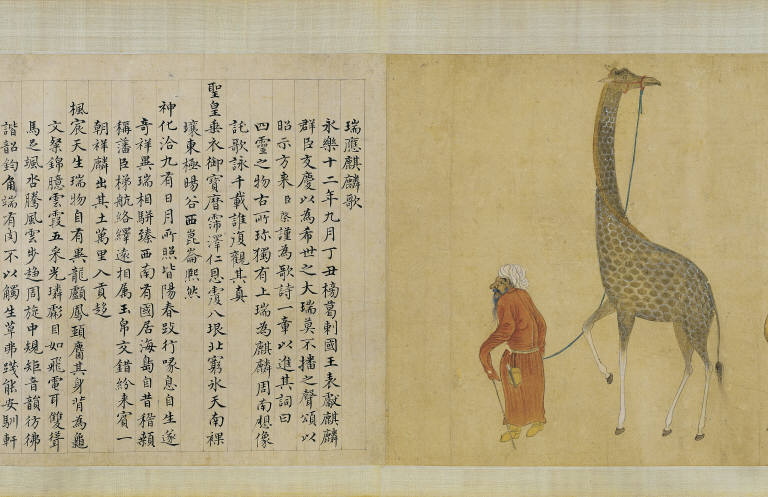 瑞應麒麟歌
永樂十二年九月丁丑榜葛剌國王表獻麒麟
群臣交慶以為希世之大瑞莫不播之聲頌以
昭示方來臣棨謹為歌詩一章以進其詞曰
四靈之物古所珍獨有上瑞為麒麟周南想像
託歌詠千載誰復覩其真
聖皇垂衣御寶曆霈澤仁恩覃八垠北窮氷天南裸
壤東極暘谷西崑崙熙然
神化洽九有日月所照皆陽春跂行喙息自生遂
奇祥異瑞相駢臻西南有國居海島自昔稽顙
稱藩臣梯航絡繹遠相属玉帛交錯紛来賓一
朝祥麟出其土萬里入貢趍
楓宸天生瑞物自有異龍顱鳳頸麕其身背為龜
文粲錦臆雲霞五采光璘目如飛電耳雙聳
馬足颯沓騰風雲步趋周旋中規矩音韻彷彿
諧韶鈞角端有肉不以觸生草弗踐能安馴軒